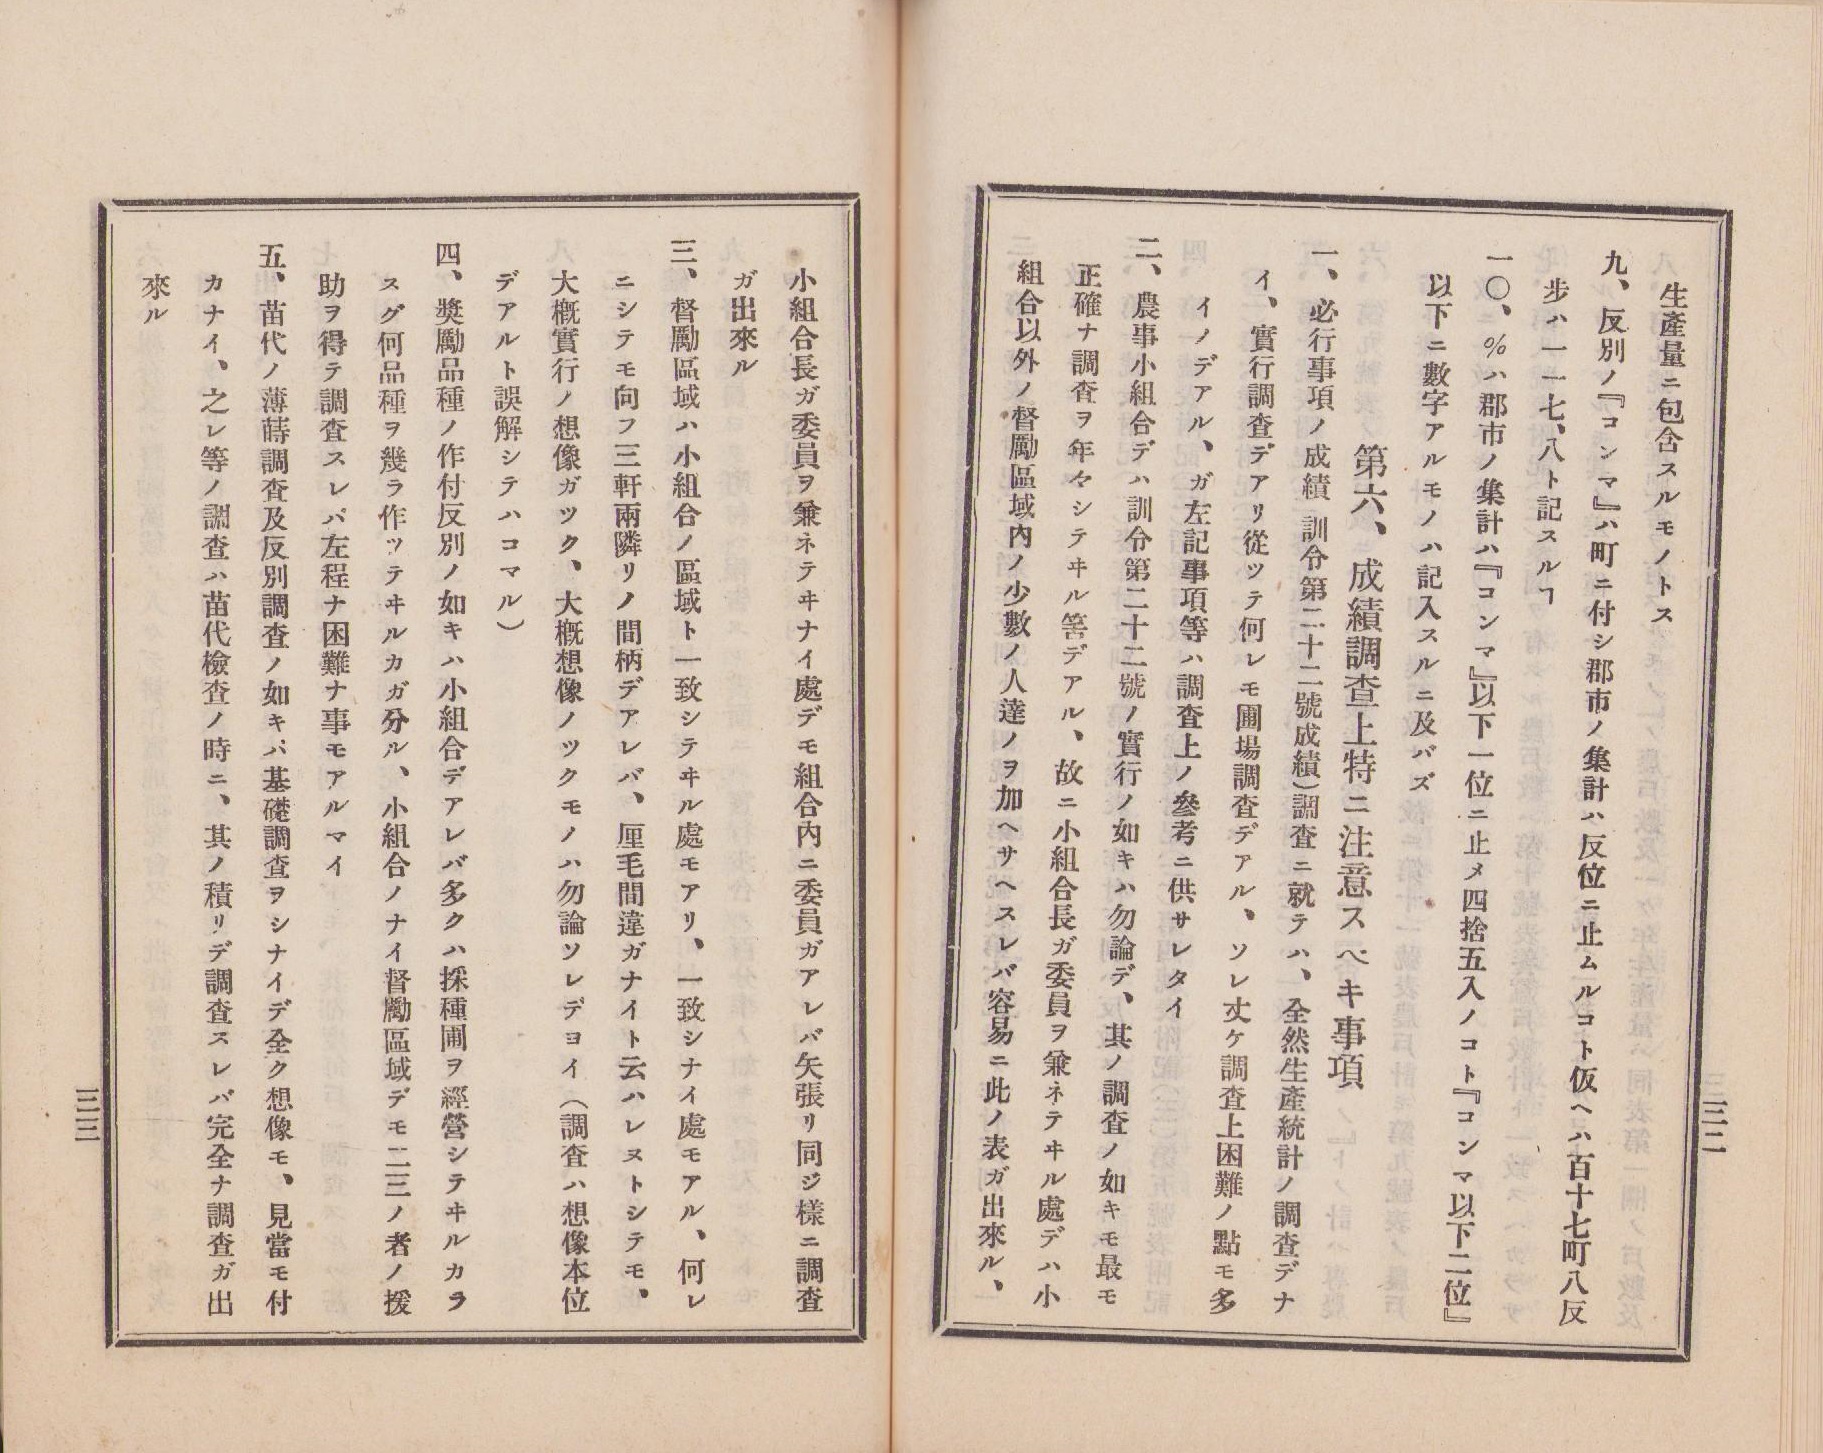 生產量ニ包含スルモノトス
九、反別ノ『コンマ』ハ町ニ付シ郡市ノ集計ハ反位ニ止ムルコト仮ヘハ百十七町八反
步ハ一一七、八ト記スルヿ
一〇、%ハ郡市ノ集計ハ『コンマ』以下一位ニ止メ四捨五入ノコト『コンマ以下二位』
以下ニ數字アルモノハ記入スルニ及バズ
第六、成績調査上特ニ注意スベキ事項
一、必行事項ノ成績 訓令第二十二號成績)調査ニ就テハ、全然生產統計ノ調査デナ
イ、實行調査デアリ從ツテ何レモ圃場調査デアル、ソレ丈ケ調査上困難ノ點モ多
イノデアル、ガ左記事項等ハ調査上ノ參考ニ供サレタイ
二、農事小組合デハ訓令第二十二號ノ實行ノ如キハ勿論デ、其ノ調査ノ如キモ最モ
正確ナ調査ヲ年々シテヰル筈デアル、故ニ小組合長ガ委員ヲ兼ネテヰル處デハ小
組合以外ノ督勵區域內ノ少數ノ人達ノヲ加ヘサヘスレバ容易ニ此ノ表ガ出來ル、
三二
小組合長ガ委員ヲ兼ネテヰナイ處デモ組合內ニ委員ガアレバ矢張リ同ジ樣ニ調査
ガ出來ル
三、督勵區域ハ小組合ノ區域ト一致シテヰル處モアリ、一致シナイ處モアル、何レ
ニシテモ向フ三軒兩隣リノ間柄デアレバ、厘毛間違ガナイト云ハレヌトシテモ、
大槪實行ノ想像ガツク、大槪想像ノツクモノハ勿論ソレデヨイ(調査ハ想像本位
デアルト誤解シテハコマル)
四、獎勵品種ノ作付反別ノ如キハ小組合デアレバ多クハ採種圃ヲ經營シテヰルカラ
スグ何品種ヲ幾ラ作ツテヰルカガ分ル、小組合ノナイ督勵區域デモ二三ノ者ノ援
助ヲ得テ調査スレバ左程ナ困難ナ事モアルマイ
五、苗代ノ薄蒔調査及反別調査ノ如キバ基礎調査ヲシナイデ全ク想像モ、見當モ付
カナイ、之レ等ノ調査ハ苗代檢査ノ時ニ、其ノ積リデ調査スレバ完全ナ調査ガ出
來ル
三三